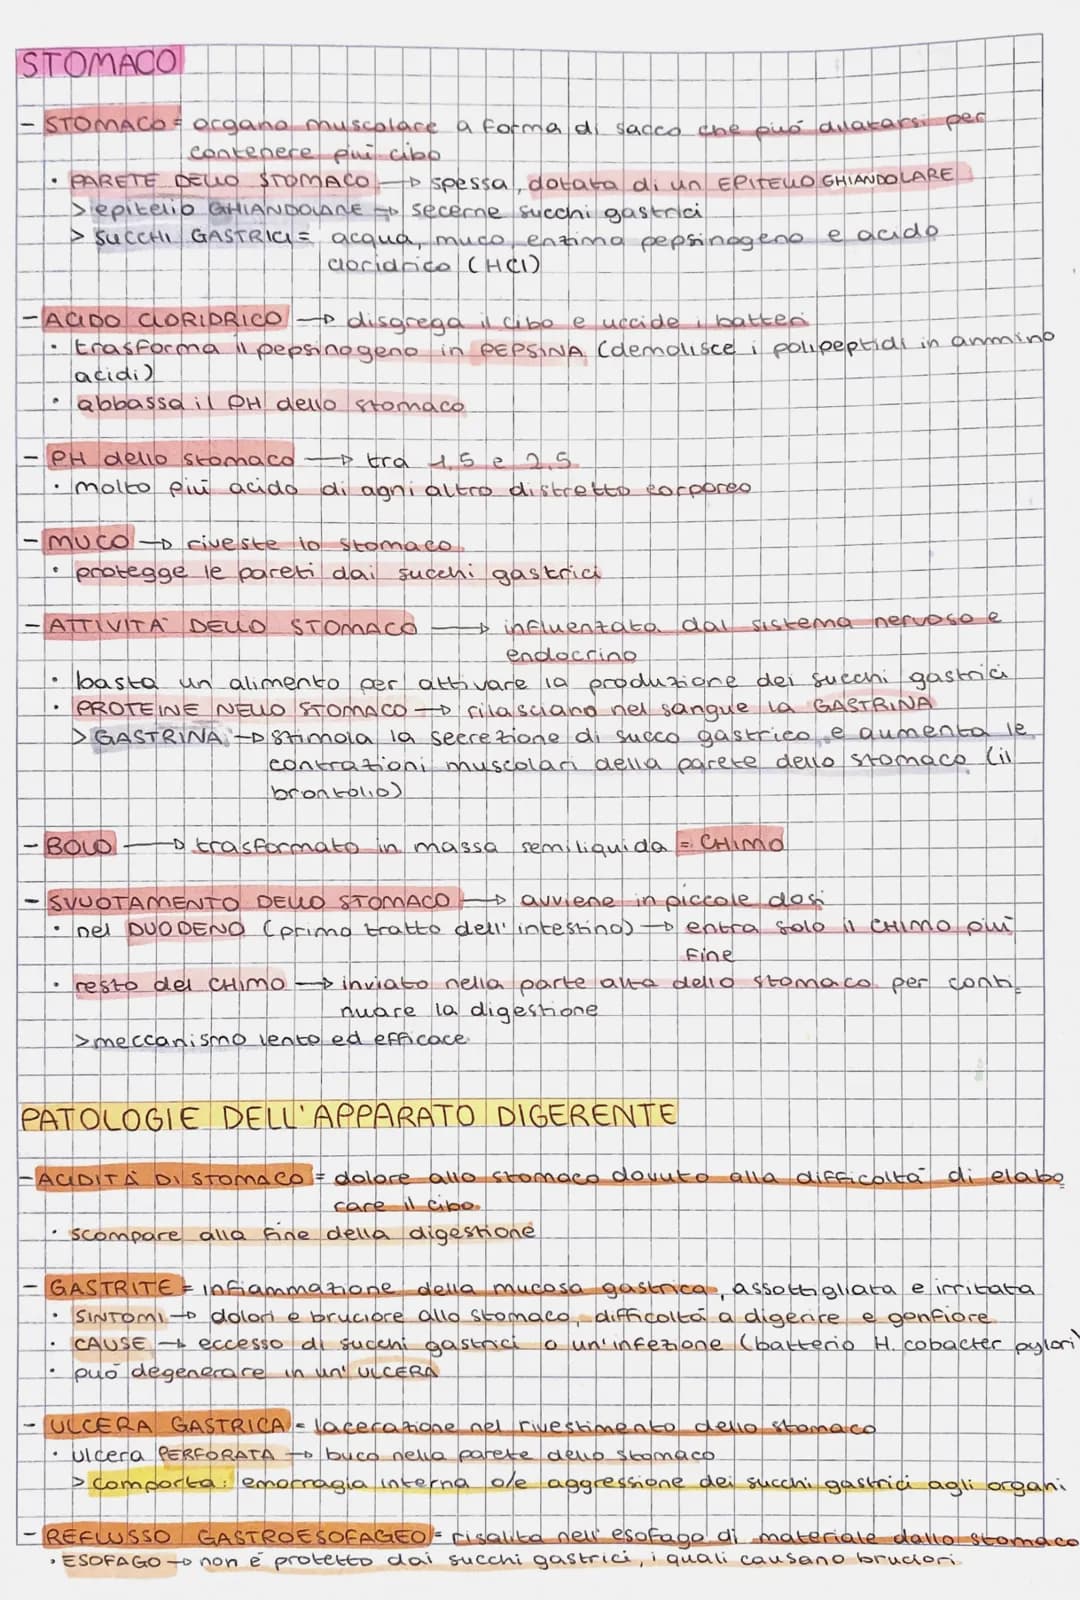 STOMACO
- STOMACO = organo muscolare a forma di sacco che può dilatarsi per
contenere più cibo
• PARETE DELLO STOMACO → spessa, dotata di un EPITELIO GHIANDOLARE
> epitelio GHIANDOLARE → secerne succhi gastrici
> SUCCHI GASTRICI = acqua, muco, enzima pepsinogeno e acido
cloridrico (HCl)
- ACIDO CLORIDRICO → disgrega il cibo e uccide i batteri
• trasforma il pepsinogeno in PEPSINA (demolisce i polipeptidi in ammino
acidi)
• abbassa il PH dello stomaco
- PH dello stomaco → tra 1,5 e 2,5
• molto più acido di ogni altro distretto corporeo
- MUCO → riveste lo stomaco
• protegge le pareti dai succhi gastrici
- ATTIVITÀ DELLO STOMACO → influenzata dal sistema nervoso e
endocrino
• basta un alimento per attivare la produzione dei succhi gastrici
• PROTEINE NELLO STOMACO → rilasciano nel sangue la GASTRINA
> GASTRINA → stimola la secrezione di succo gastrico e aumenta le
contrazioni muscolari della parete dello stomaco (il
brontolio)
- BOLO → trasformato in massa semiliquida = CHIMO
- SVUOTAMENTO DELLO STOMACO → avviene in piccole dosi
• nel DUODENO (primo tratto dell'intestino) → entra solo il CHIMO più
fine
• resto del CHIMO → inviato nella parte alta dello stomaco per conti-
nuare la digestione
> meccanismo lento ed efficace
PATOLOGIE DELL'APPARATO DIGERENTE
- ACIDITÀ DI STOMACO = dolore allo stomaco dovuto alla difficoltà di elabo
rare il cibo
• scompare alla fine della digestione
- GASTRITE = infiammazione della mucosa gastrica, assottigliata e irritata
• SINTOMI → dolori e bruciore allo stomaco, difficoltà a digerire e gonfiore
• CAUSE → eccesso di succhi gastrici o un'infezione (batterio H. cobacter pylori)
• può degenerare in un'ULCERA
- ULCERA GASTRICA = lacerazione nel rivestimento dello stomaco
• ulcera PERFORATA → buco nella parete dello stomaco
> comporta: emorragia interna o/e aggressione dei succhi gastrici agli organi
- REFLUSSO GASTROESOFAGEO = risalita nell'esofago di materiale dallo stomaco
• ESOFAGO → non è protetto dai succhi gastrici, i quali causano bruciori